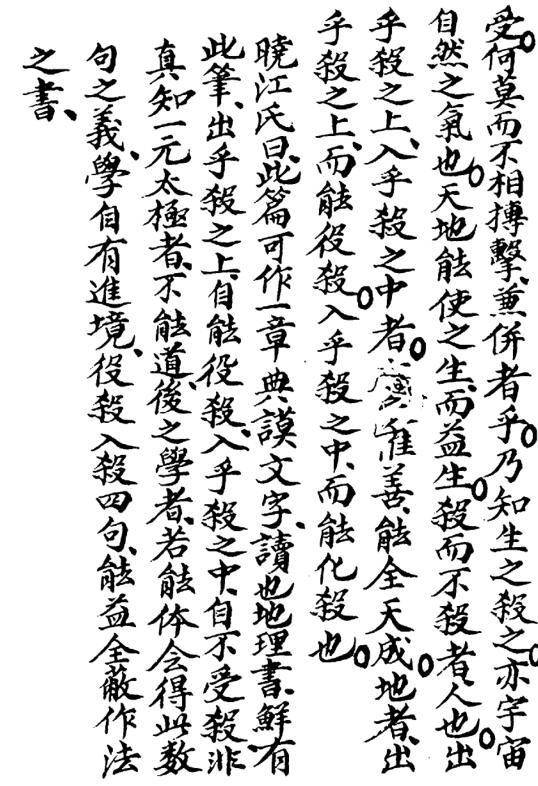 受。何莫而不相摶擊、兼併者乎。乃知生之殺之。亦宇宙
自然之氣也。天地能使之生、而益生。殺而不殺者、人也。出
乎殺之上、入乎殺之中者。惟善、能全天成地者、出
乎殺之上、而能役殺。入乎殺之中、而能化殺也。
曉江氏曰、此篇可作一章典謨文字、讀也地理書、鮮有
此筆、出乎殺之上、自能役殺、入乎殺之中、自不受殺、非
真知一元太極者、不能道、後之學者、若能体会得此數
句之義、學自有進境、役殺入殺四句、能益全蔽作法
之書、